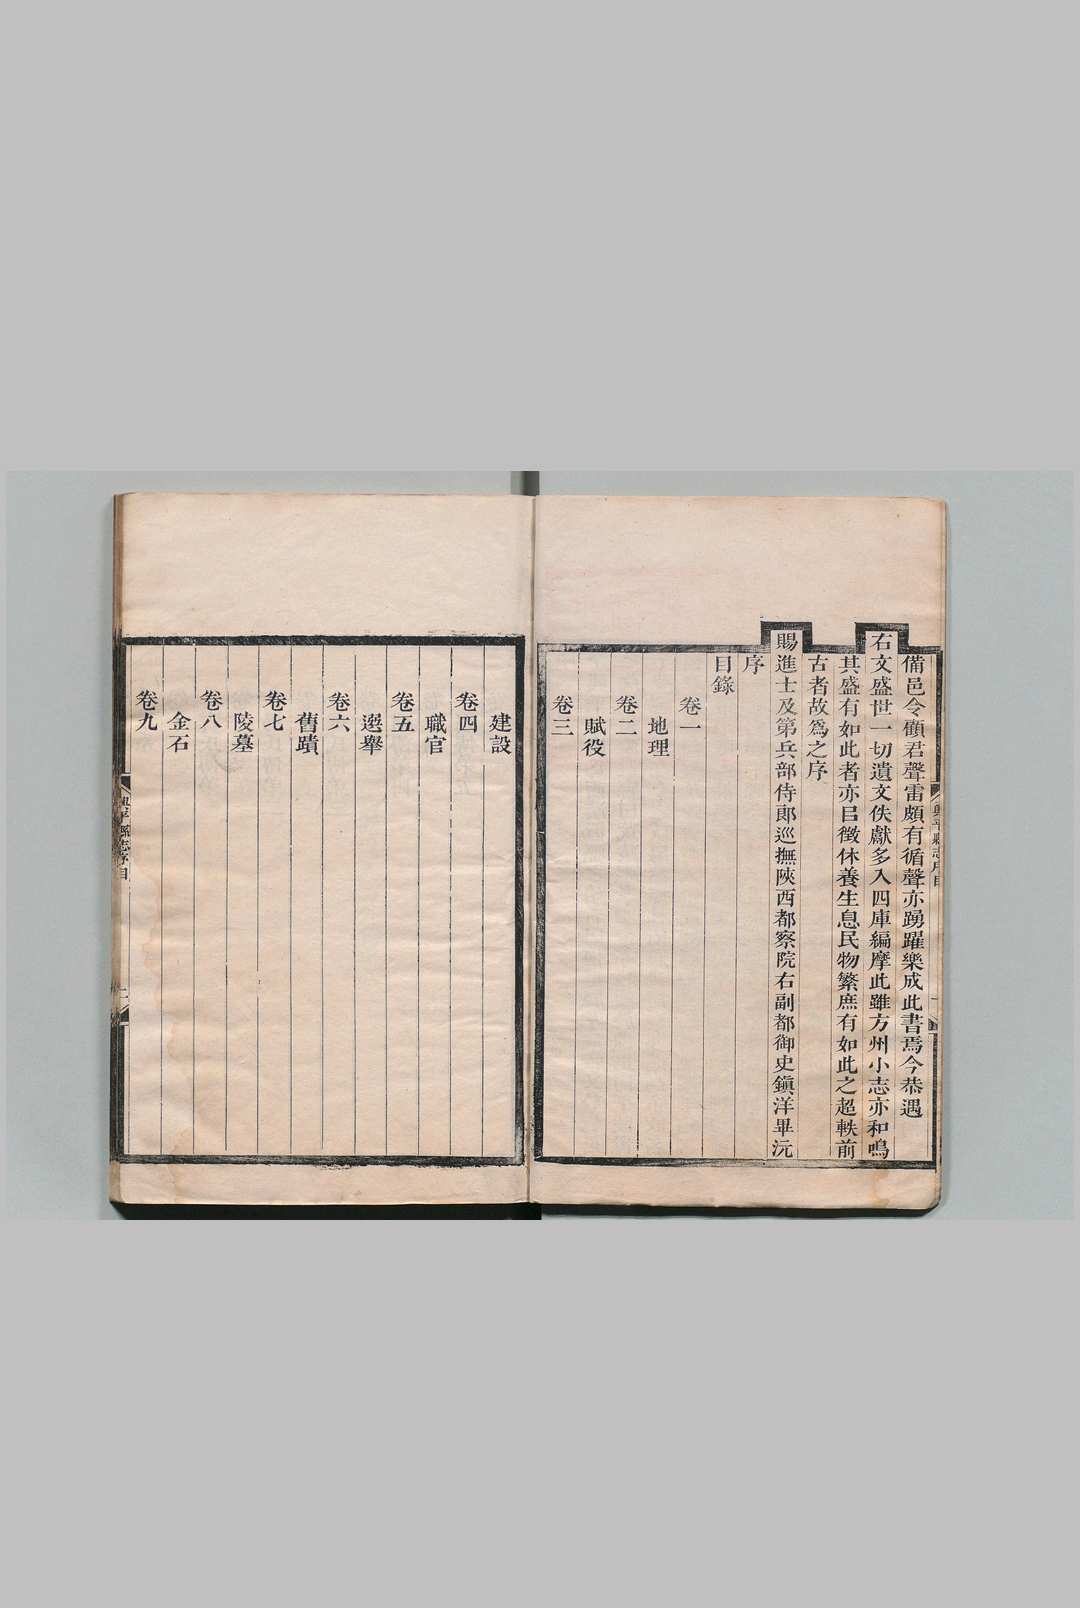 備邑令顧君聲雷頗有循聲亦踴躍樂成此書焉今恭遇
右文盛世一切遺文佚獻多入四庫編摩此雖方州小志亦和鳴
其盛有如此者亦㠯徵休養生息民物繁庶有如此之超軼前
古者故爲之序
賜進士及第兵部侍郎巡撫陝西都察院右副都御史鎮洋畢沅
序
目錄
卷一
地理
卷二
賦役
卷三
建設
卷四
職官
卷五
選舉
卷六
舊蹟
卷七
陵墓
卷八
金石
卷九
興平縣志序目
二